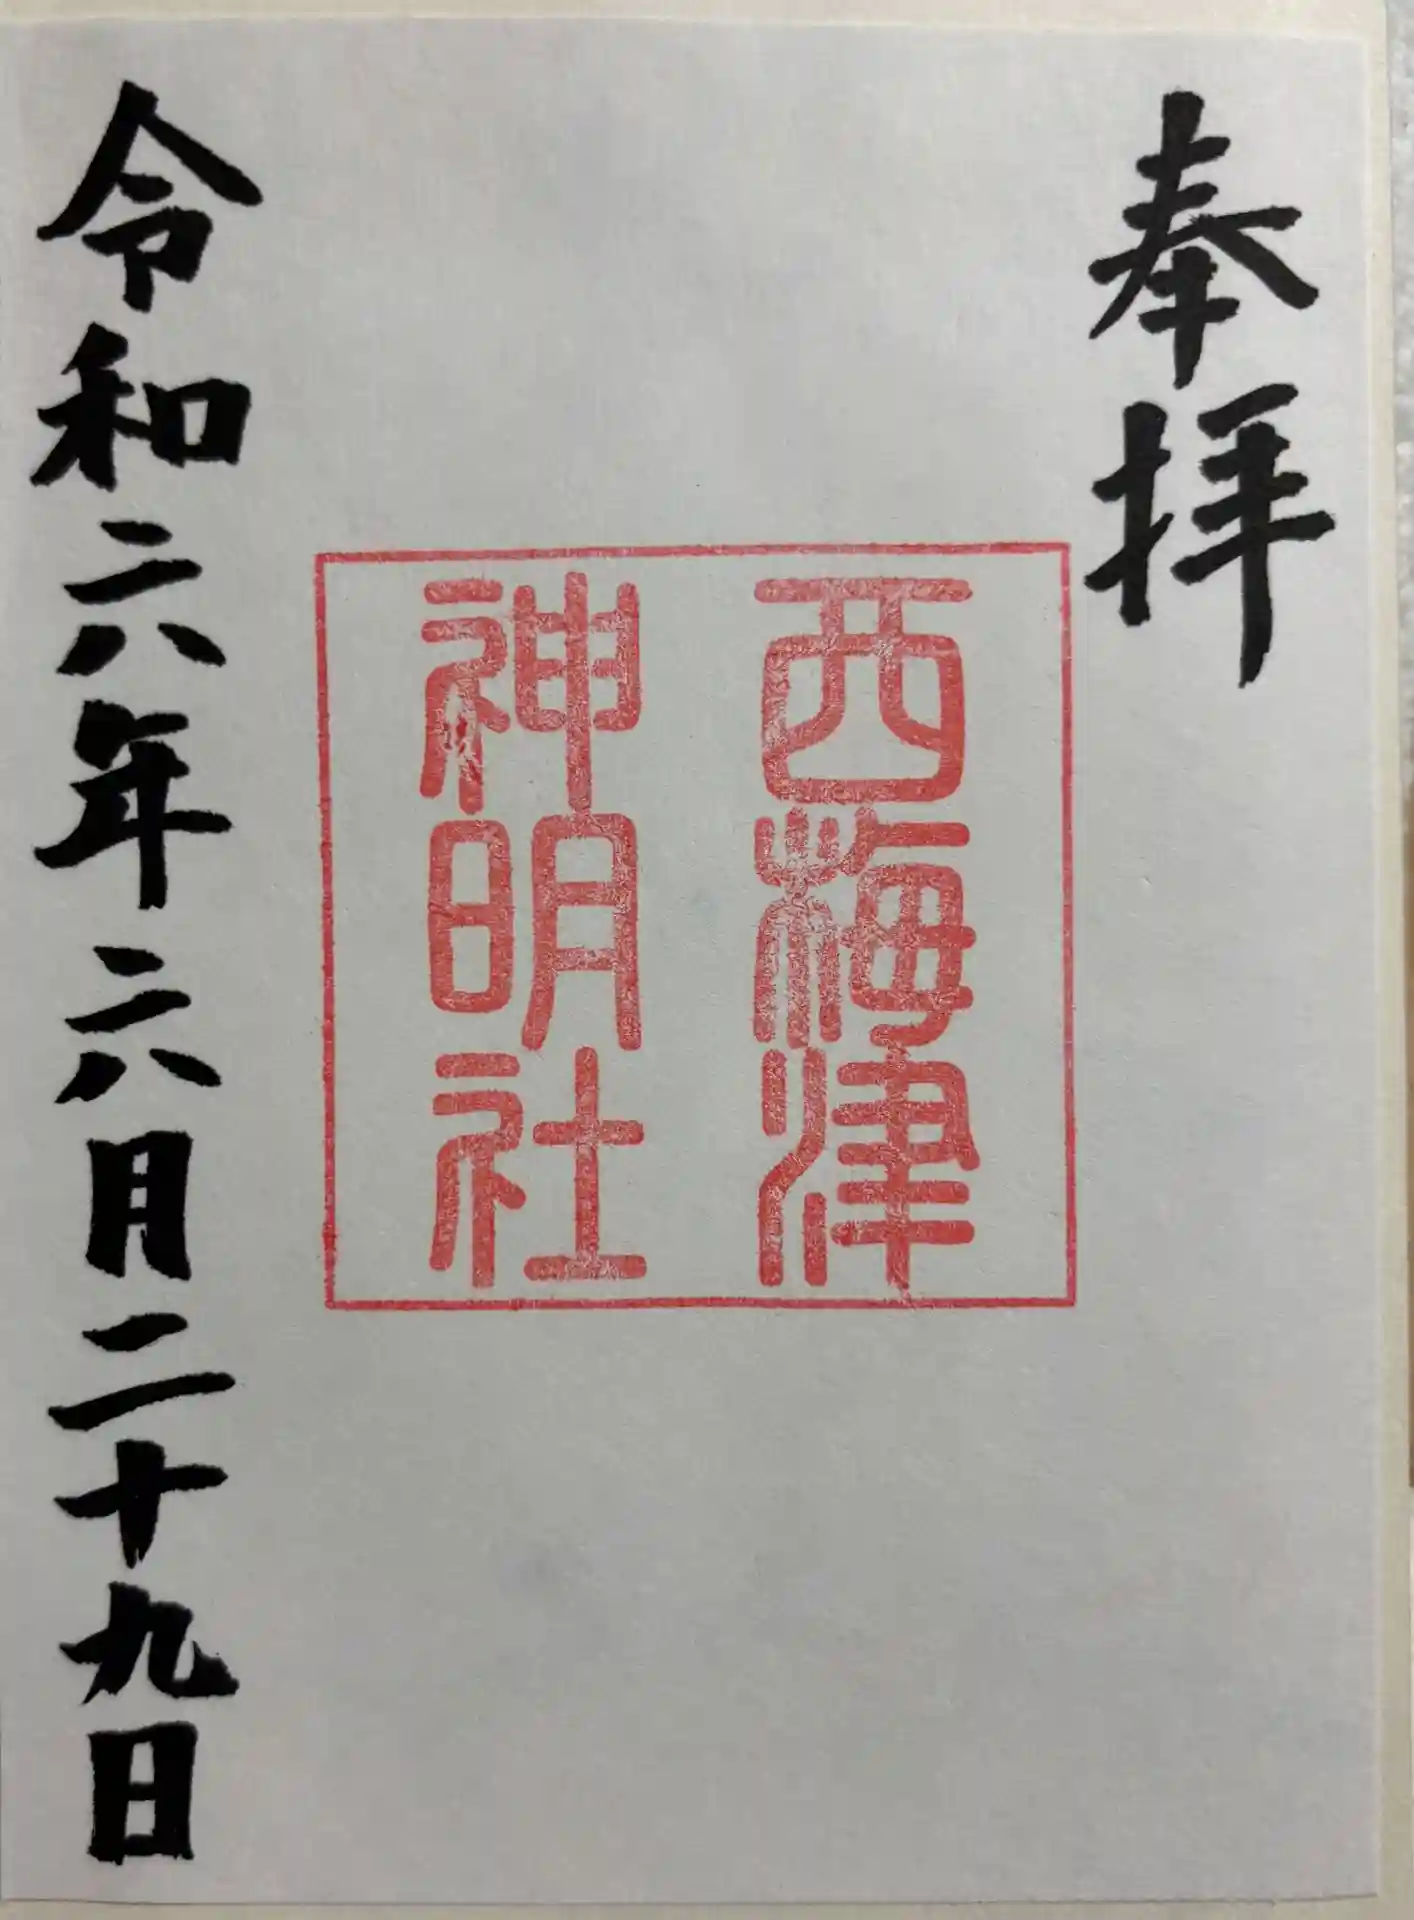 奉拝
西梅津
神明社
令和六年六月二十九日